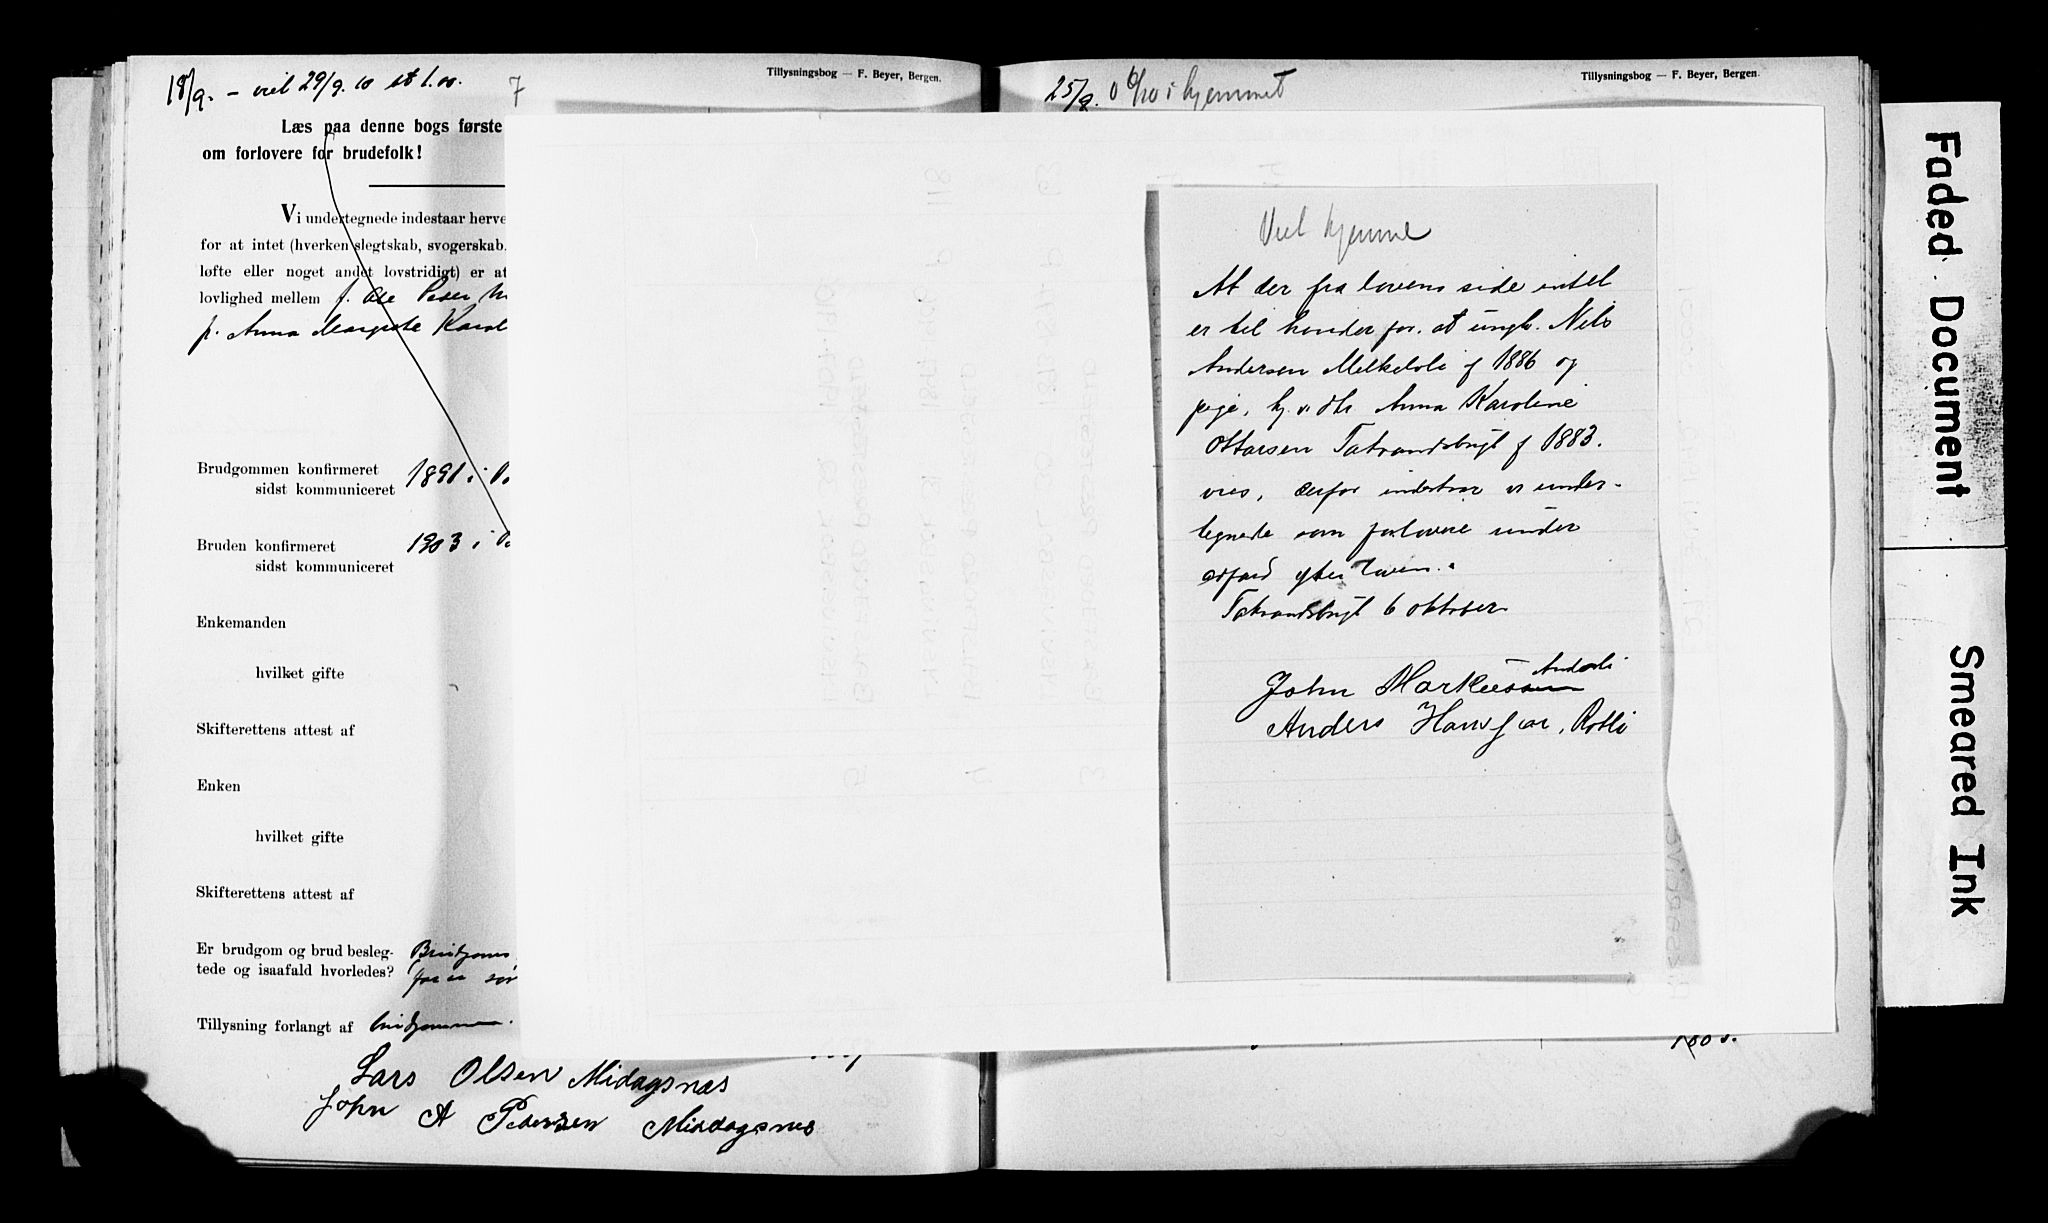 18/9. – viet 29/9. 10 at 1.00.
7
Tillysningsbog — F. Beyer, Bergen.
Læs paa denne bogs første
om forlovere for brudefolk!
Vi undertegnede indestaar herve
for at intet (hverken slegtskab, svogerskab,
løfte eller noget andet lovstridigt) er at
lovlighed mellem f. Ole Peder
p. Anna Margrete Karol
Brudgommen konfirmeret 1891 i
sidst kommuniceret
Bruden konfirmeret 1903 i
sidst kommuniceret
Enkemanden
hvilket gifte
Skifterettens attest af
Enken
hvilket gifte
Skifterettens attest af
Er brudgom og brud besleg- Brudgoms
tede og isaafald hvorledes? far er
Tillysning forlangt af brudgommen.
Lars Olsen Midagsnæs
John A Pedersen Middagsnes
25/9. 6/10 i hjemmet
Tillysningsbog — F. Beyer, Bergen.
Viet hjemme
At der fra lovens side intet
er til hinder for at ungk. Nils
Andersen Melkeli f 1886 og
pige, Anna Karoline
Ottarsen f 1883.
vies, derfor indestaar vi under-
tegnede som forlovere under
ansvar efter loven.
6 oktober
John Markussen
Anders Hansen, Rotli
Faded Document
Smeared Ink